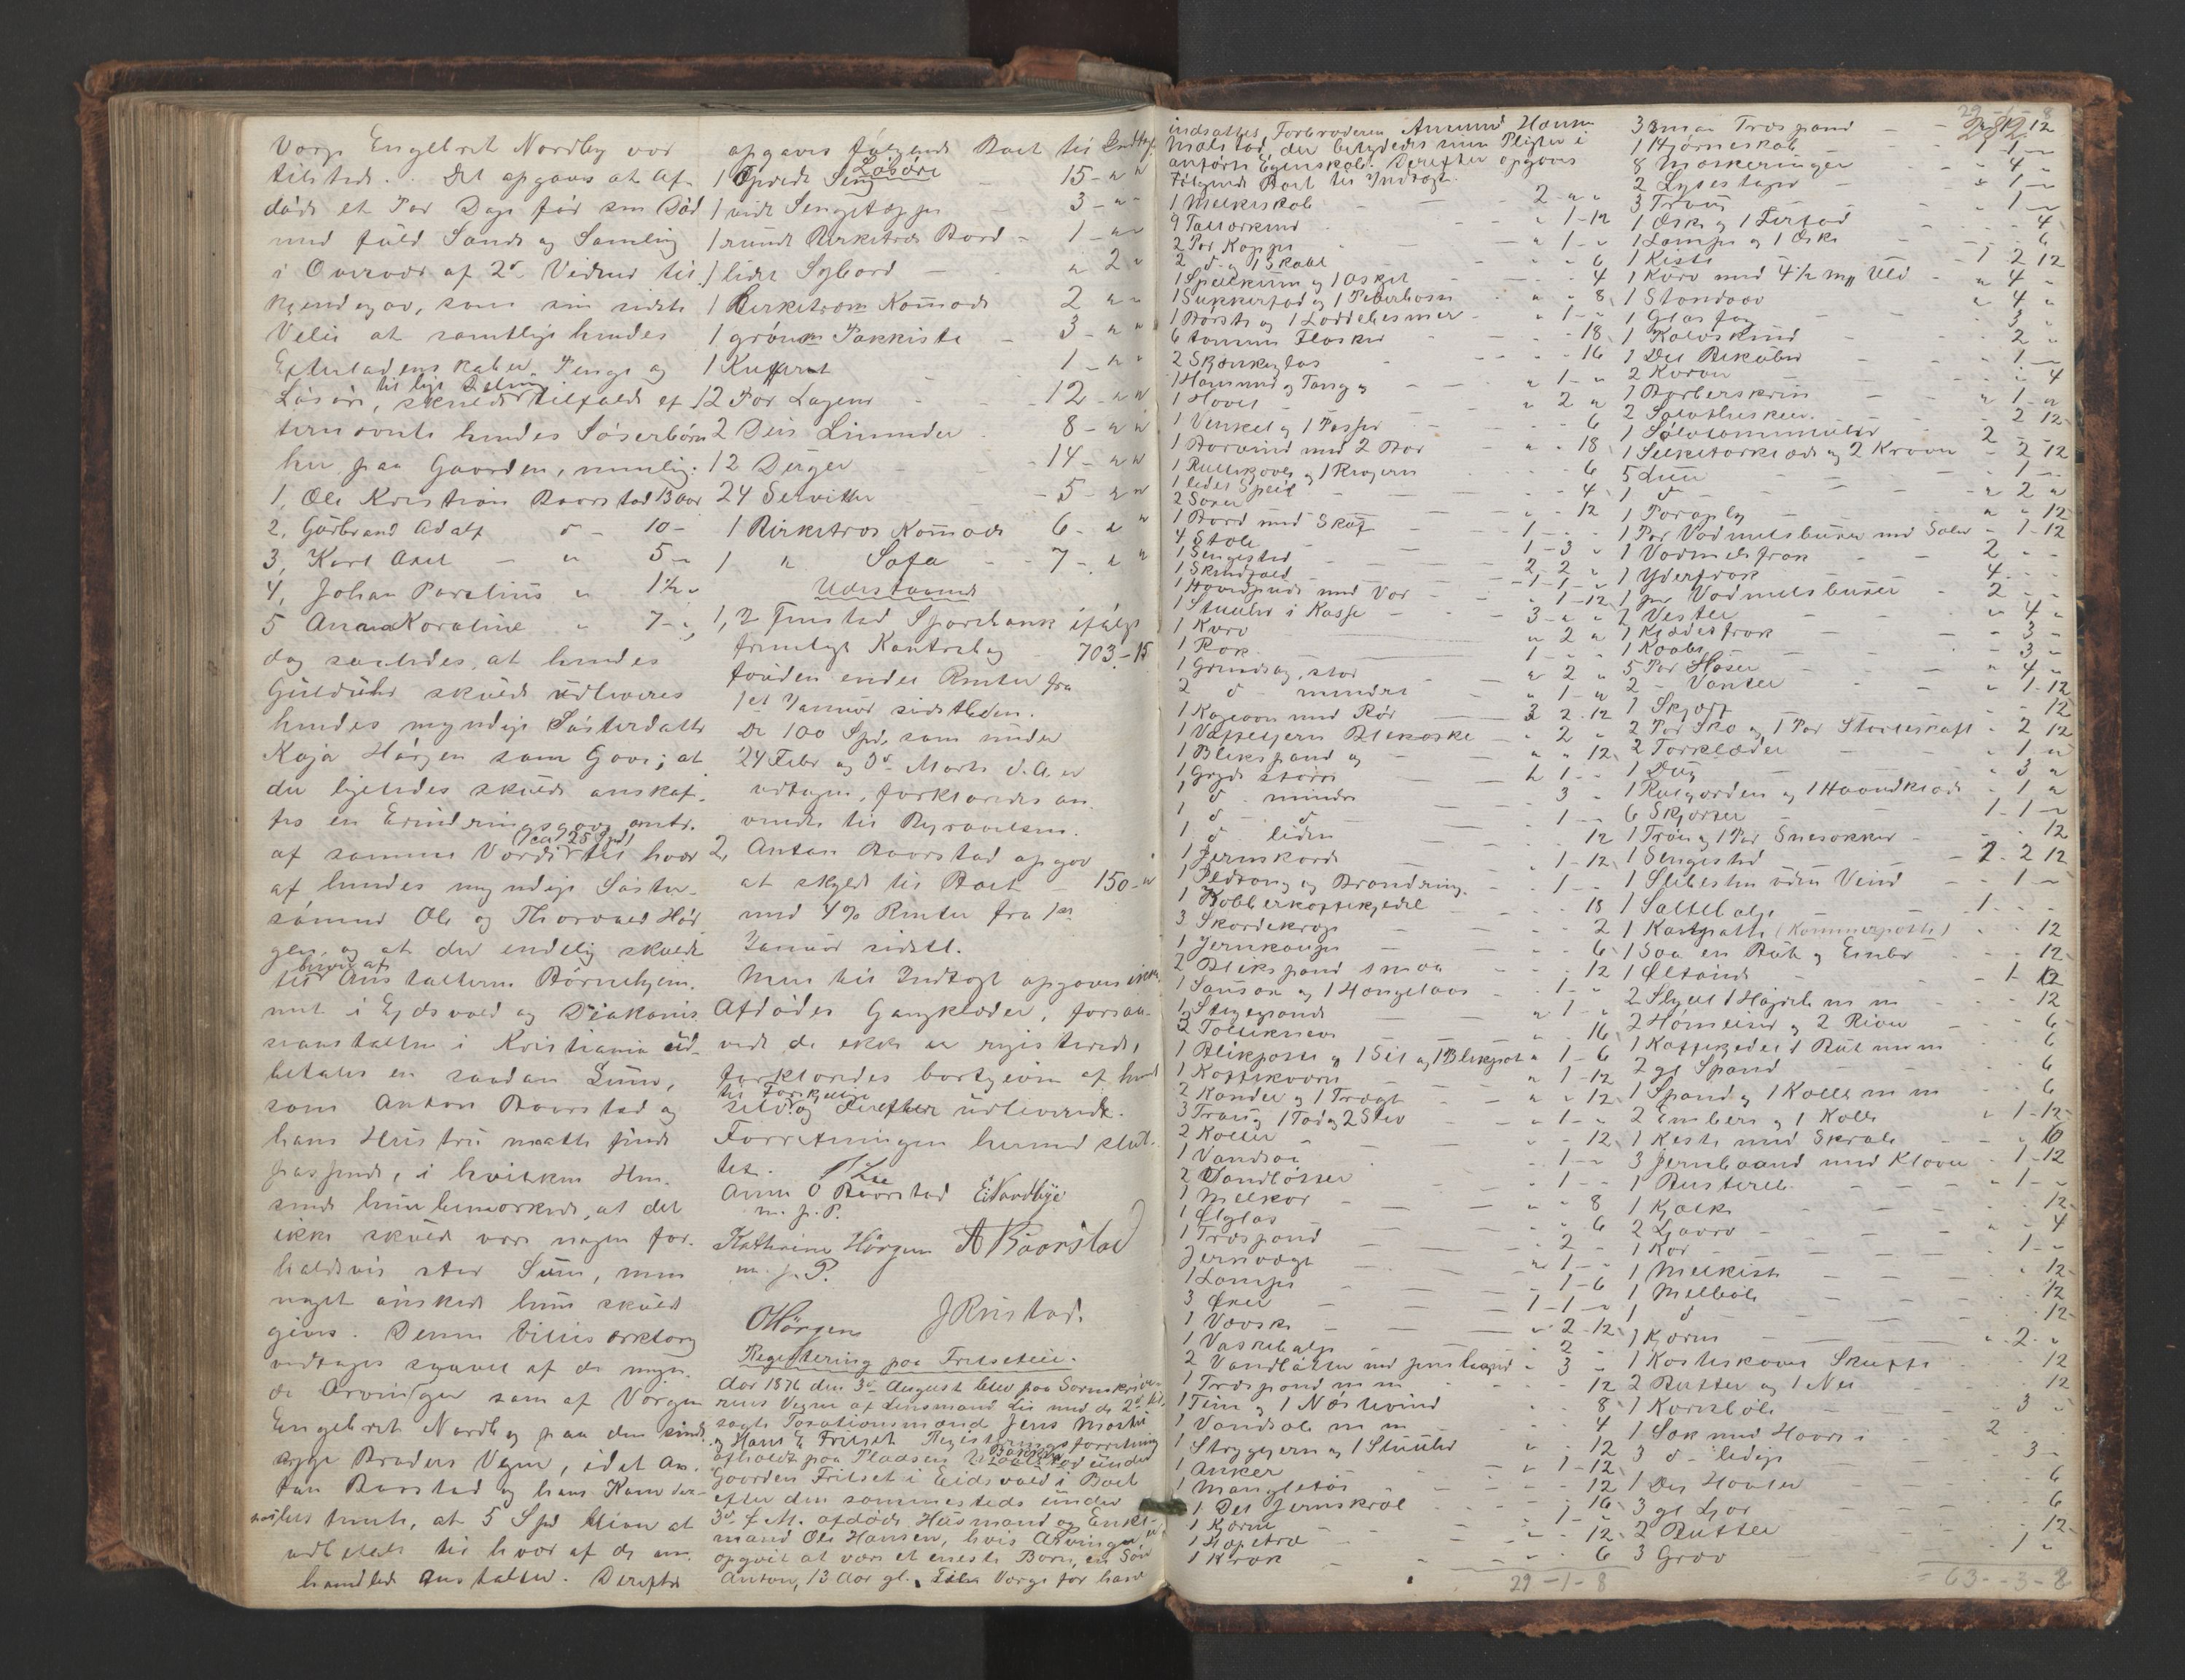 Vorge Engelbret Nordby var
tilstede. Det opgaves at Af-
døde et Par Dage før sin Død
med fuld Sands og Samling
i Overvær af 2de Vidner til
kjendegav, som sin sidste
Villie at samtlige hendes
Efterladenskaber, Penge og
Løsøre, til lige Deling skulde tilfalde ef
ternævnte hendes Søsterbørn
her paa Gaarden, nemlig:
1, Ole Kristian Baarstad 13 Aar
2, Gulbrand Adolf d - 10 -
3, Karl Axel - " 5 -
4, Johan Parelius " 1½ "
5 Anna Karoline " 7 - "
dog saaledes, at hendes
Guldühr skulde udleveres
hendes myndige Søsterdatter
Kaja Hörgen som Gave; at
der ligeledes skulde anskaf-
fes en Erindringsgave omtr.
af samme Værdi (ca 25 Spd) til hver
af hendes myndige Søster-
sønner Ole og Thorvald Hör
gen, og at der endelig skulde
til hver af Anstalterne Börnehjem-
met i Ejdsvold og Diakonis
seanstalten i Kristiania ud-
betales en saadan Sum,
som Anton Baarstad og
hans Hustru maatte finde
passende, i hvilken Hen-
seende hun bemærkede, at det
ikke skulde være nogen for-
holdsvis stor Sum, men
noget ønskede hun skulde
gives. Denne Villieserklæring
vedtages saavel af de myn-
di Arvinger som af Vorgen
Engelbret Nordby paa den sinds
syge Broders Vegne, idet An-
ton Baarstad og hans Kone der-
hos lovede, at 5 Spd bliver at
udbetale til hver af de om-
handlede Anstalter. Derefter
opgaves følgende Boet til Indtægt
Løsøre
1 Opredt Seng - 15 - " "
1 hvidt Sengetæppe 3 - " "
1 rundt Birketræs Bord - 1 - " "
1 lidet Sybord - " 2 "
1 Birketræs Komode 2 " "
1 grøn Pakkiste - 3 - " "
1 Kuffert 1 - " "
12 Par Lagener - 12 - " "
2 Duse Linneder - 8 - " "
12 Duger - 14 - " "
24 Servitter - 5 - " "
1 Birketræs Komode 6 - " "
1 " Sofa - 7 - " "
Udestaaende
1, 2 Fenstad Sparebank ifølge
fremlagt Kontrabog 703 - 15
foruden endel Renter fra
1ste Januar sidstleden.
De 100 Spd, som under
24 Febr og 3de Marts d. A. er
udtagne, forklaredes an-
vendte til Begravelsen.
2, Anton Baarstad opgav
at skylde til Boet - 150 - "
med 4 % Renter fra 1ste
Januar sidstl.
Mere til Indtægt opgaves ikke
Afdødes Gangklæder, forsaa-
vidt de ikke er registerede,
forklaredes bortgivne af hende
selv til Forskjellige og derefter udleverede.
Forretningen hermed slut-
tet.
Lie
Anne O Baarstad E. Nordbye
m. p. P.
Kathrine Hörgen A Baarstad
m. p. P.
O Hörgen J Rustad.
Registering paa Frilseteie.
Aar 1876 den 3de August blev paa Sorenskrive-
rens Vegne af Lensmand Lie med de 2de til-
sagte Taxationsmænd Jens Mostue
og Hans E Frilset Registeringsforretning
afholdt paa Pladsen Bakken under
Gaarden Frilset i Eidsvold i Boet
efter den sammesteds under
3de f. M. afdøde Husmand og Enke-
mand Ole Hansen, hvis Arvinger
opgives at være et eneste Barn, en Søn
Anton, 13 Aar gl. Til Vorge for ham
indsattes Farbroderen Amund Hansen
Maalstad, der betydedes sine Pligter i
anførte Egenskab. Derefter opgaves
Følgende Boet til Indtægt.
1 Melkeskab - 2 " "
9 Tallærkener " 1 - 12
2 Par Kopper - " 1 - "
2 d og 1 Skaal - 6
1 Spilkum og 1 Asket - 4
1 Sukkerfad og 1 Peberbøsse - " " 8
1 Børste og 1 Loddebesmer - " 1 - "
6 tomme Flasker - 18
2 Skjænkeglas - 16
1 Hammer og Tang - " 1 - "
1 Høvel - " 2 "
1 Vinkel og 1 Passer - 6
1 Borvind med 2 Bor " " 18
1 Rullekavle og 1 Kragjern 6
1 lidet Speil - 4
2 Saxer - 12
1 Bord med Skuf - 1 - -
4 Stole - 1 - 3 "
1 Sengested - 2 2 "
1 Skindfeld - 1 - 1 - "
1 Hovedpude med Var - 1 - 12
1 Stueuhr i Kasse - 3 - " "
1 Kurv " 2 "
1 Rok - 1 - "
1 Grindsag, stor - " 2 "
2 d mindre " 1 - "
1 Kogeovn med Rør 3 2 - 12
1 Vaffeljern Blikæske - " 2 "
1 Blikspand og " " 12
1 Gryde større - 1 -
1 d mindre - 3 "
1 d - d - 1 - -
1 d liden - 12
1 Jernskorde - 1 - 12
1 Ildtang og Brandring - 1 - "
1 Kobberkaffekjedel - 18
3 Skordekrog - 2
1 Jernkauge - 6
2 Blikspand smaa - 12
1 Saugsax og 1 Hængelaas - 1 - "
1 Stegepande " 1 - "
3 Tolleknive " 16
1 Blikpøse og 1 Sil og 1 Blikspot " 1 - 6
1 Kaffekværn " 1 - 12
2 Kander og 1 Tragt " " 12
3 Traug 1 Fad og 2 Slev - " 1 - "
2 Koller - " " 12
1 Vandsaa - 1 - "
2 Vandbøtter - 1 - "
1 Melkar - " " 8
1 Ølglas " " 6
1 Træspand - 2 -
Jernvægt " 1 - "
1 Lampe - 1 - 6
3 Øxer - 1 - 1 - "
1 Vævske - " 2 - 12
1 Vaskebalje - 2 -
2 Vandbøtter med Jernbaand " 3 "
1 Træspand m m - 12
1 Tine og 1 Nøstevind - 8
1 Vandsele m m - 4
1 Strygejern og 1 Stueuhr " 12
1 Anker " 1 - 12
1 Mangletøi - 12
1 Del Jernskrab - 16
1 Kjerne - 1 - "
1 Høpetræ - 12
1 Krak - 6
29 - 1 - 8
29 - 1 - 8
3 smaa Træspand - 12
1 Hjørneskab - 1 -
8 Mærkeringer - 4 "
2 Lysestager - 1 -
3 Traug - 1 -
1 Æske og 1 Lerfad - 4
1 Lampe og 1 Æske - 6
1 Kiste - 1 2 12
1 Kurv med 4½ M# Uld " 4 "
1 Standaar " 4 "
1 Glasfag - 3 "
1 Kalveskind - 2 "
1 Del Bekøbler - 1 -
2 Karver - 4
1 Barberskrin - 1 - "
2 Sølvtheskeer - 2 12
1 Sølvlommeuhr 2 - -
1 Silketørklæde og 2 Kraver - 2 12
5 Luer - 1 -
1 d - " 2 "
1 Paraply " " 12
1 Par Vadmelsbuxer med Saler - 1 - 12
1 Vadmelsfrak - 2 - -
1 Yderfrak - 4 - -
1 par Vadmelsbuxer - 2 -
2 Vester " 4 "
1 Klædesfrak - 3 "
1 Kaabe - 3 "
5 Par Hoser " 4 "
2 - Vanter " 1 - 12
1 Skjorte - 12
2 Par Sko og 1 Par Støvleskaft - 2 12
2 Torklæder - 1 "
1 Dug - 3 "
1 Rulgarden og 1 Haandklæde - 1 "
6 Skjorter - 1 - 1 -
1 Trøie og 1 Par Snesokker - 12
1 Sengested - 2 - 2 12
1 Slibesten uden Veiv - 1 -
1 Saltebalje 1 - -
1 Kastpotte (Kammerpotte) - 12
1 Saa en Bøtte og Ember - 12
1 Øltønde - 1 12
2 Slyul 1 Høgrib m m - 12
2 Hømeiser og 2 River - 6
1 Kaffekjedel 1 Bøtte m m 6
2 gl Spand - 6
1 Spand og 1 Kolle m m - 6
2 Embere og 1 Kolle " 1 - 12
1 Kiste med Skrab - 10
3 Jernbaand med Klaver - 1 - 12
1 Busterel - " 1 - "
1 Kjælke - 12
2 Ljaarv - " 4
1 Kar - 1 - "
1 Melkiste - 12
1 Melbøle - 12
1 d - 12
1 Kjerne - " 2 "
1 Kosteskovl Skuffe - 12
2 Bøtter og 1 Nei - 12
1 Kornbøle - 3 "
1 Sæk med Havre i 2
3 d - ledige - 3 -
1 Del Hauler - 6
3 gl Ljaa - 6
2 Bøtter - 12
3 Grev - 1 "
= 63 - 3 - 8